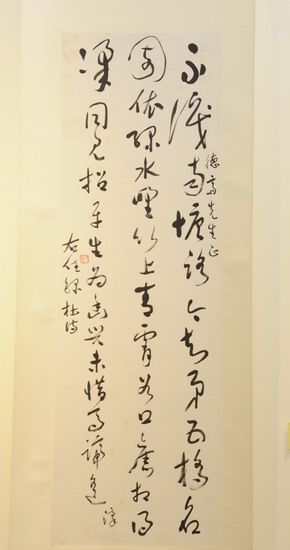 不識南塘路今知第五橋名
德高先生正
園依綠水野竹上青霄谷口舊相得
梁同見招平生為幽興未惜馬蹄遙
濠
右任錄杜詩